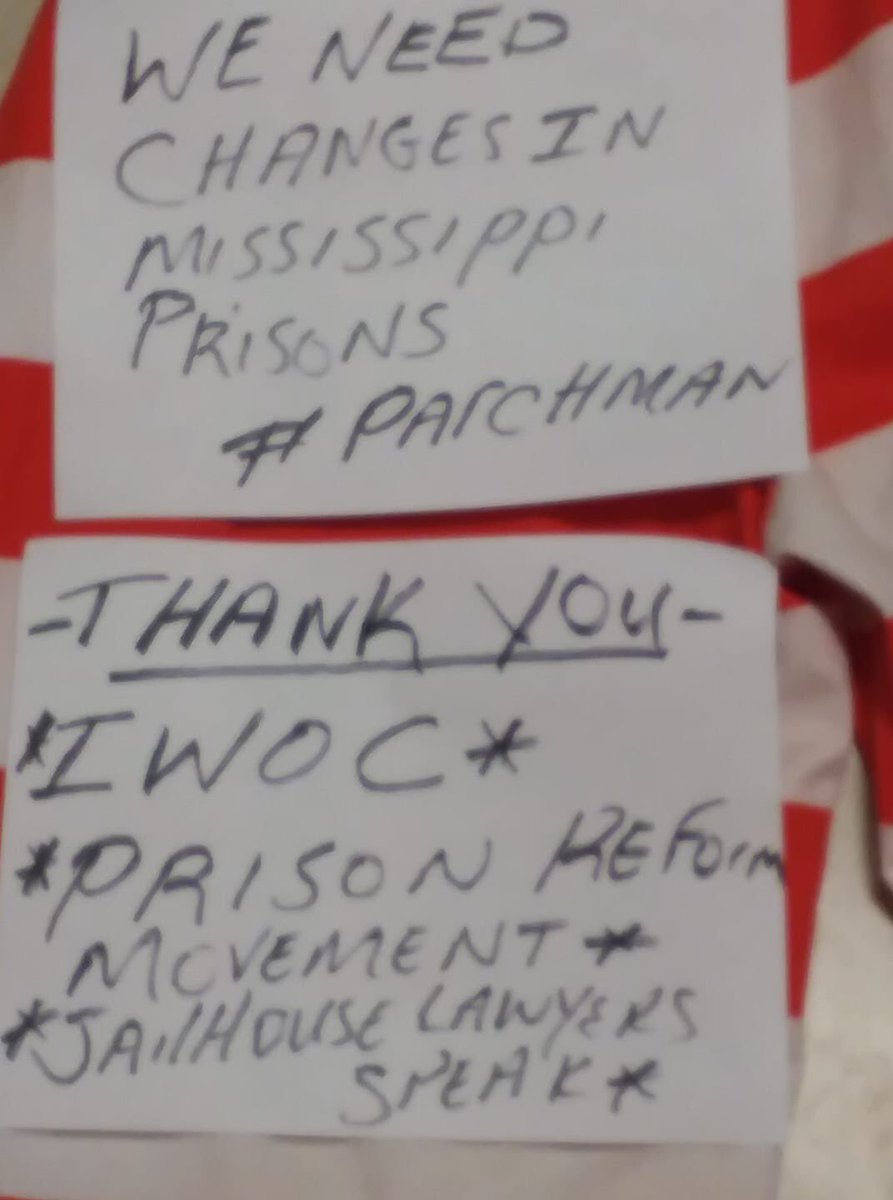 WE NEED
CHANGES IN
MISSISSIPPI
PRISONS
# PARCHMAN
-THANK YOU-
*IWOC*
*PRISON REFORM
MOVEMENT*
*JAILHOUSE LAWYERS
SPEAK*